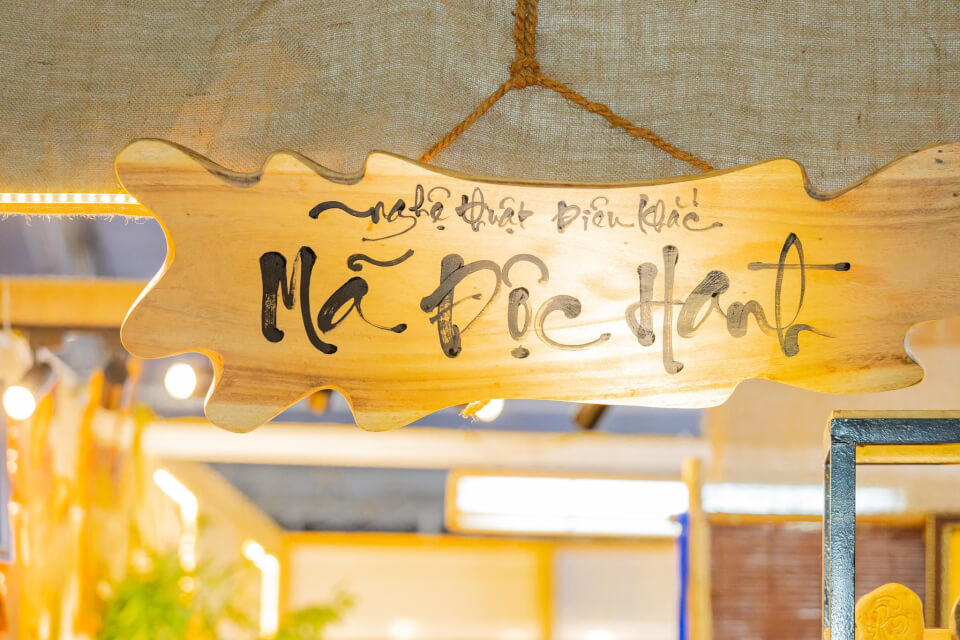 Nghệ thuật Điêu khắc
Mã Độc Hành